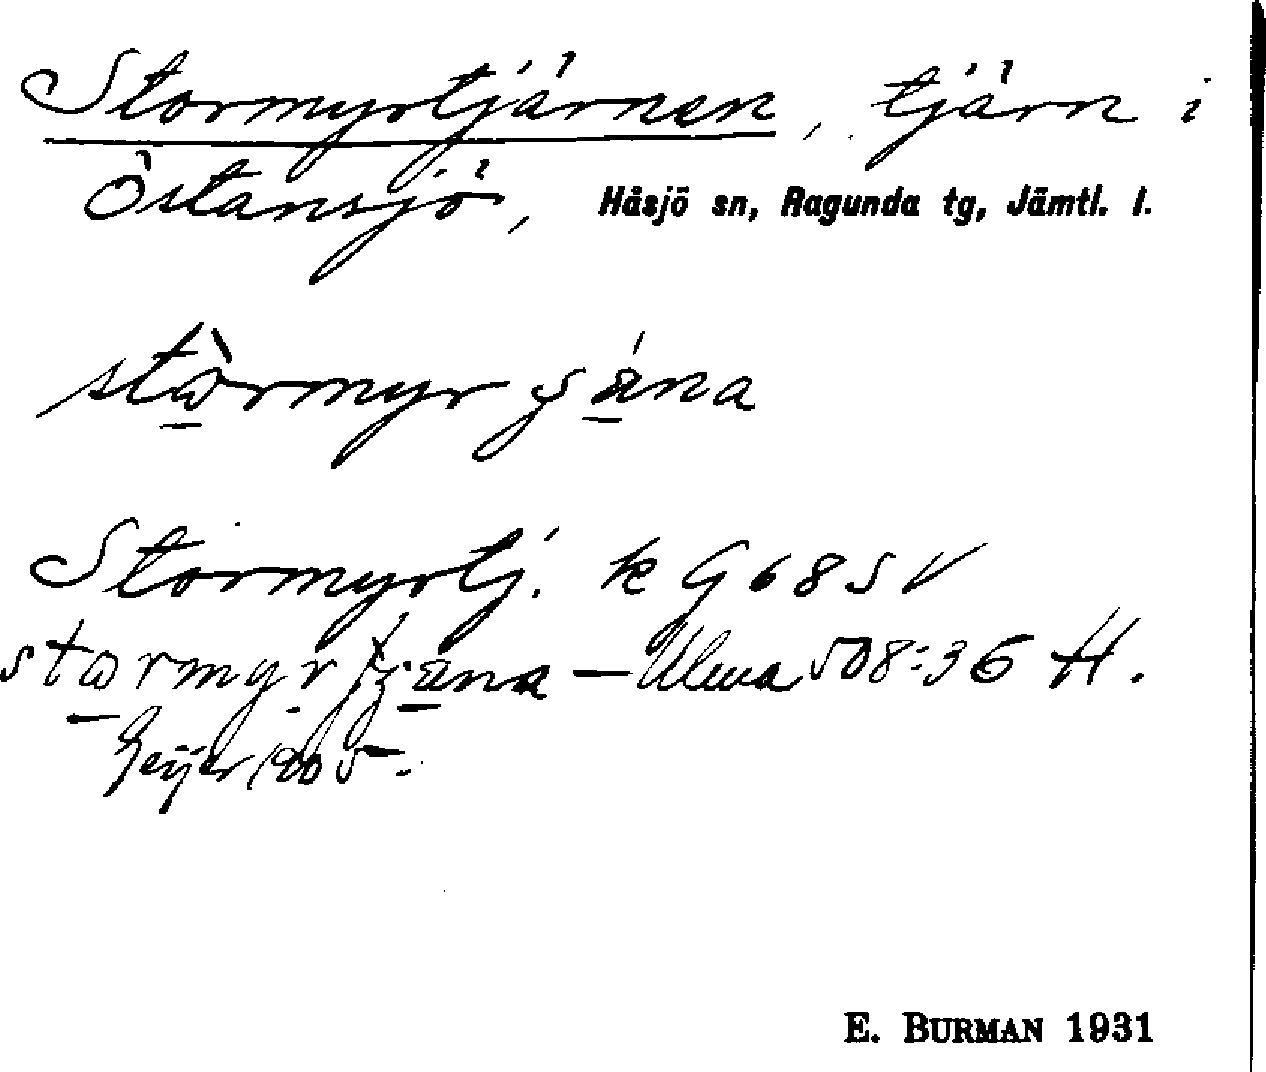 Stormyrtjärnen, tjärn i
Östansjö, Håsjö sn, Ragunda tg, Jämtl. l.
Stormyrtj. k G 68 SV
Ulma 508:36 H.
Geijer 1905.
E. BURMAN 1931